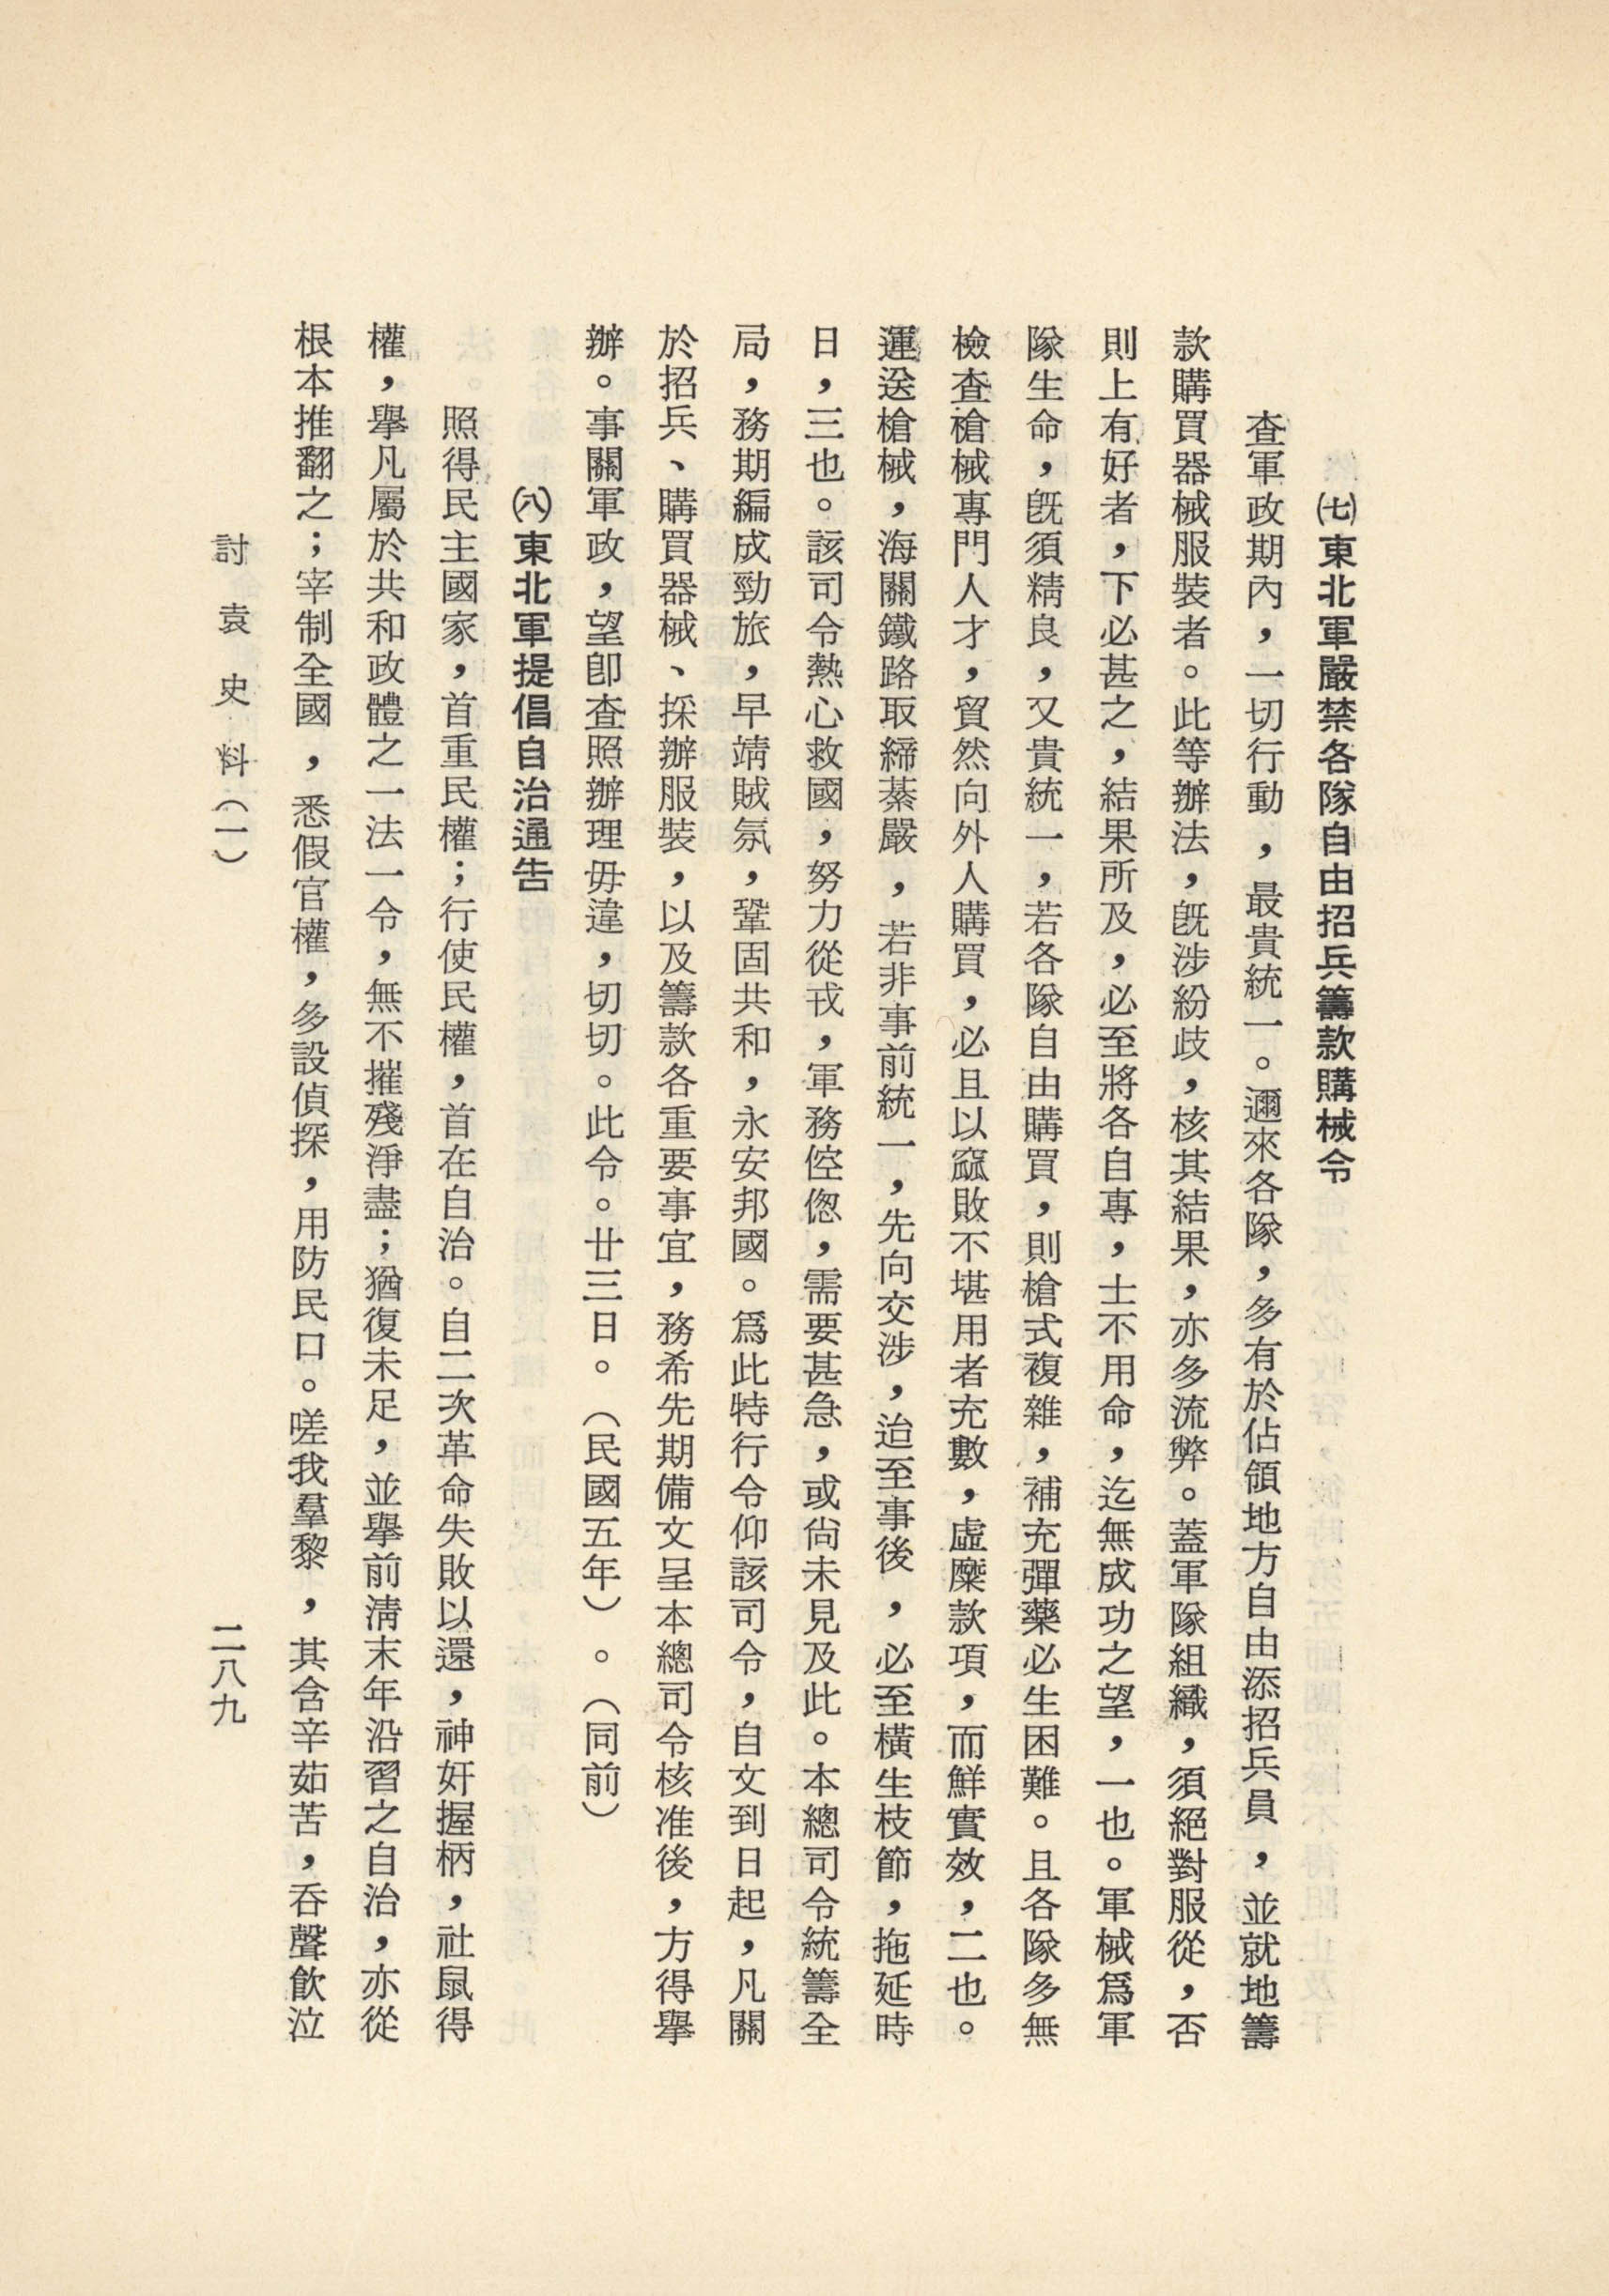 ㈦東北軍嚴禁各隊自由招兵籌款購械令
查軍政期內，一切行動，最貴統一。邇來各隊，多有於佔領地方自由添招兵員，並就地籌
款購買器械服裝者。此等辦法，旣涉紛歧，核其結果，亦多流弊。蓋軍隊組織，須絕對服從，否
則上有好者，下必甚之，結果所及，必至將各自專，士不用命，迄無成功之望，一也。軍械爲軍
隊生命，旣須精良，又貴統一，若各隊自由購買，則槍式複雜，補充彈藥必生困難。且各隊多無
檢查槍械專門人才，貿然向外人購買，必且以窳敗不堪用者充數，虛糜款項，而鮮實效，二也。
運送槍械，海關鐵路取締綦嚴，若非事前統一，先向交涉，迨至事後，必至橫生枝節，拖延時
日，三也。該司令熱心救國，努力從戎，軍務倥偬，需要甚急，或尙未見及此。本總司令統籌全
局，務期編成勁旅，早靖賊氛，鞏固共和，永安邦國。爲此特行令仰該司令，自文到日起，凡關
於招兵、購買器械、採辦服裝，以及籌款各重要事宜，務希先期備文呈本總司令核准後，方得舉
辦。事關軍政，望卽查照辦理毋違，切切。此令。廿三日。（民國五年）。（同前）
㈧東北軍提倡自治通告
照得民主國家，首重民權；行使民權，首在自治。自二次革命失敗以還，神奸握柄，社鼠得
權，舉凡屬於共和政體之一法一令，無不摧殘淨盡；猶復未足，並舉前淸末年沿習之自治，亦從
根本推翻之；宰制全國，悉假官權，多設偵探，用防民口。嗟我羣黎，其含辛茹苦，吞聲飮泣
討袁史料（一）
二八九